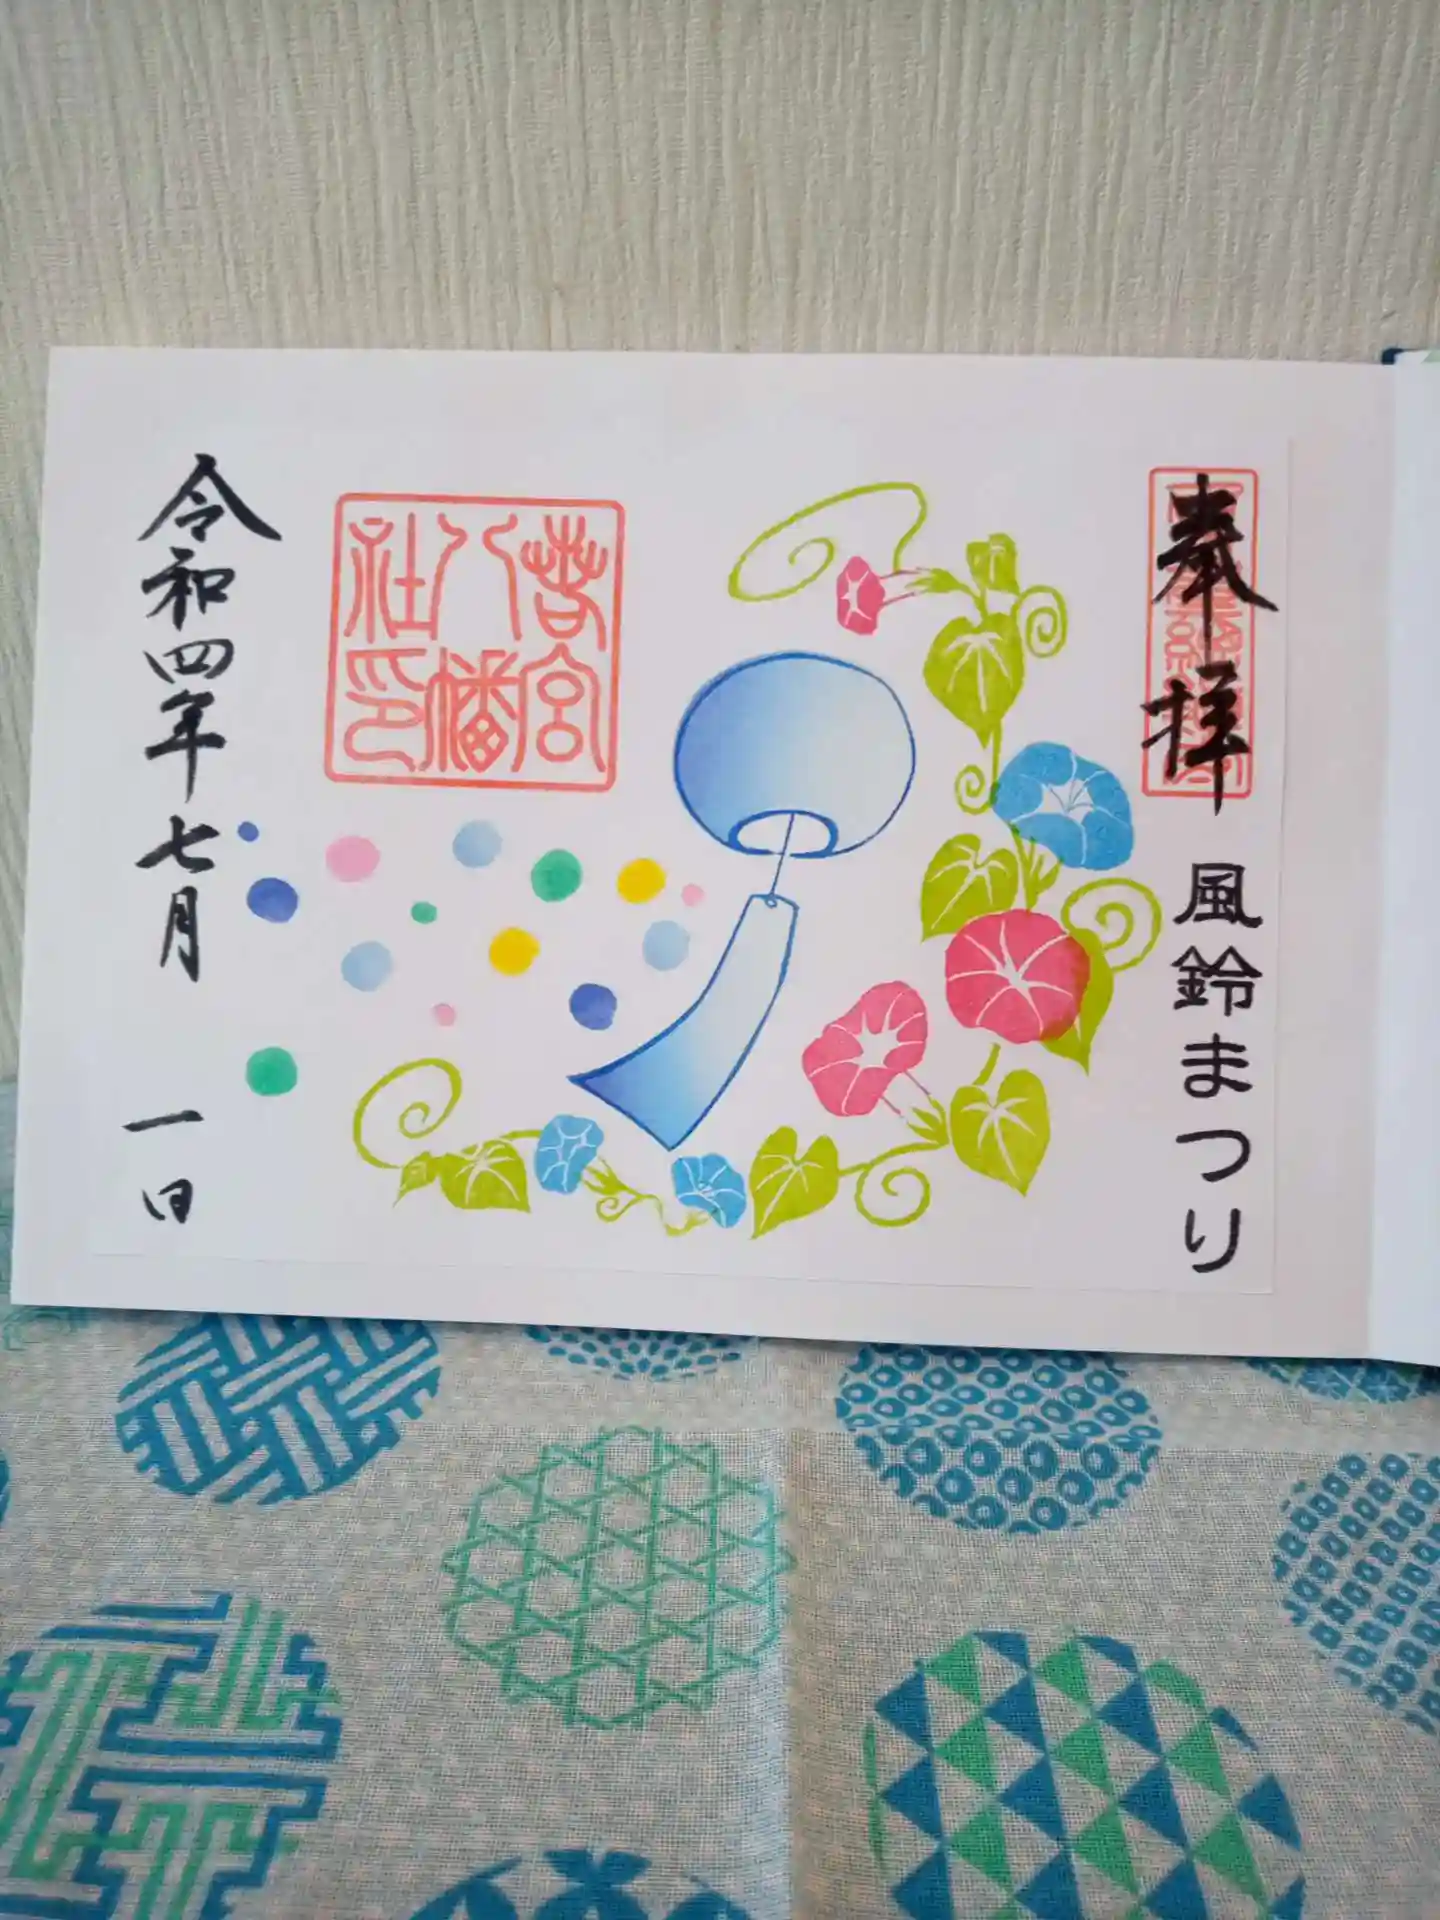 奉拝
風鈴まつり
若宮
八幡
社印
令和四年七月
一日